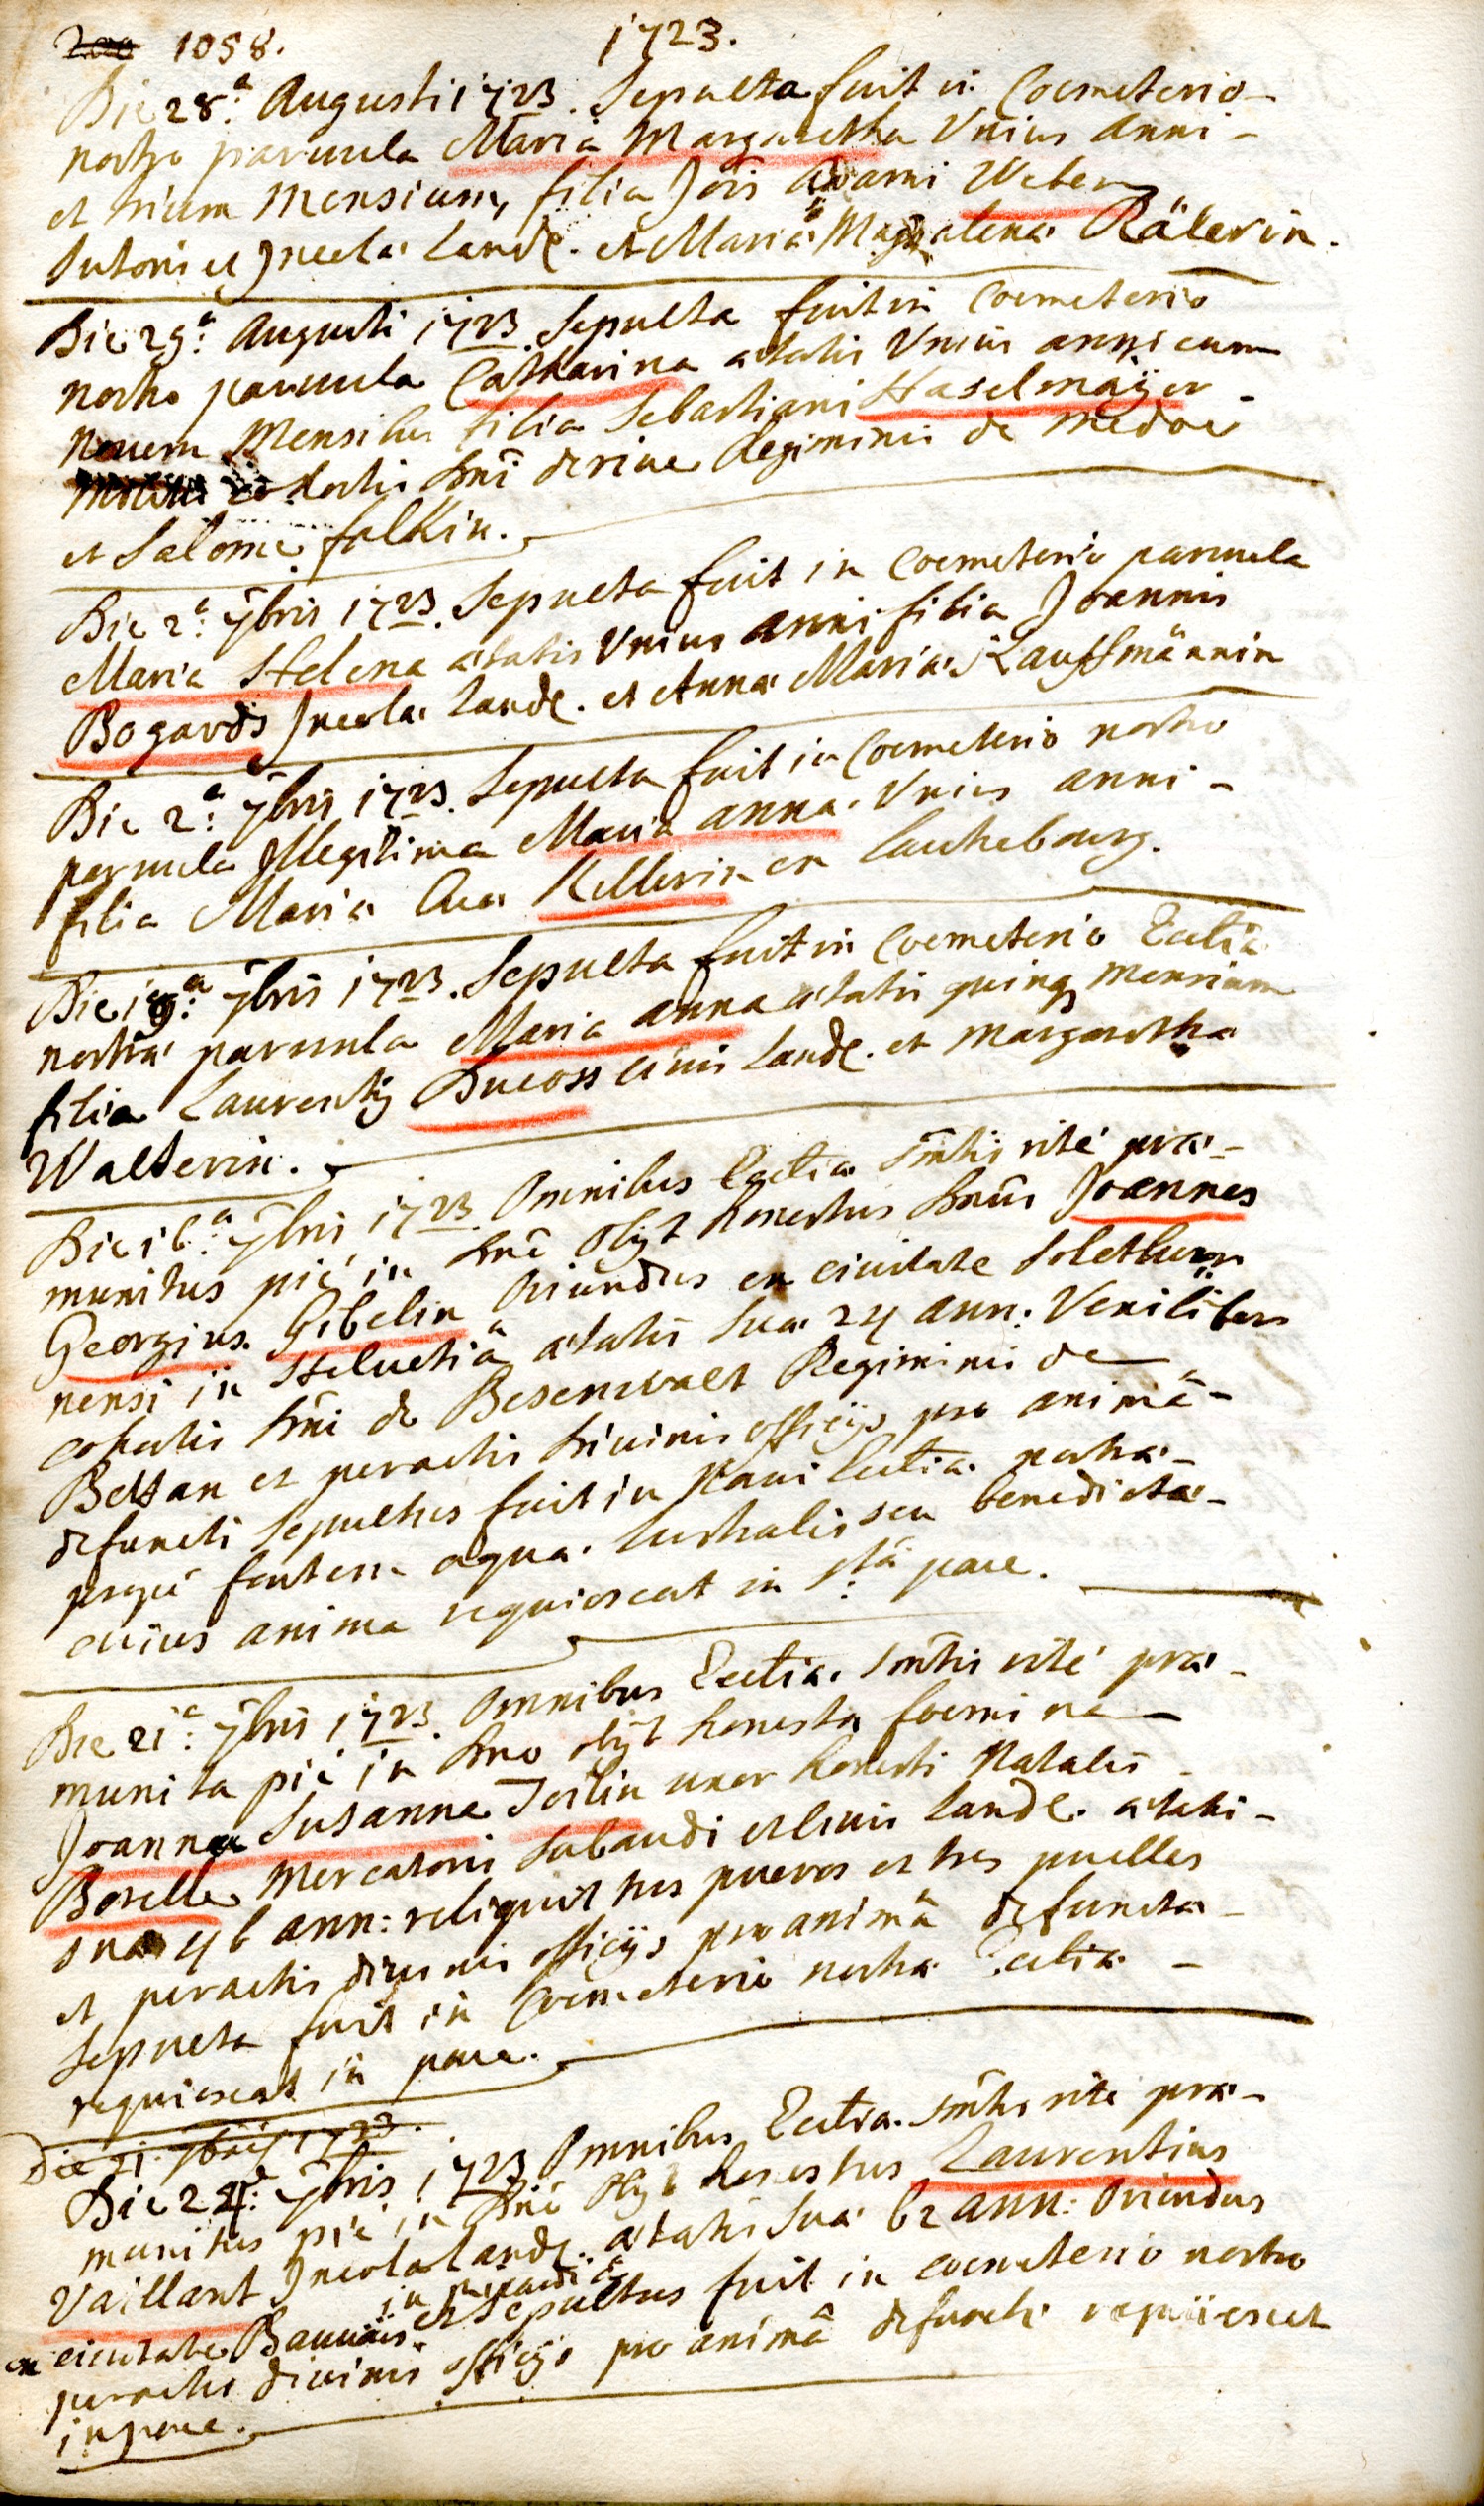 1058. 1723.
Die 28.a Augusti 1723. Sepulta fuit in Coemeterio-
nostro paruula Maria Margaretha Vnius anni-
et trium Mensium, filia Jois Adami Weber
Sutoris et Incolæ Landæ. et Mariæ Magdalenæ Rälerin.
Die 29.a Augusti 1723 Sepulta fuit in Coemeterio
nostro paruula Catharina ætatis Vnius anni cum
Nouem Mensibus filia Sebastiani Haselmaÿer-
cohortis Dni Regiminis de Medoc
et Salome falkin.
Die 2.a 7bris 1723. Sepulta fuit in Coemeterio paruula
Maria Helena ætatis Vnius anni filia Joannis
Bogards Incolæ Landæ. et Annæ Mariæ Kauffmännin
Die 2.a 7bris 1723. Sepulta fuit in Coemeterio nostro
paruula Illegitima Maria anna. Vnius anni-
filia Mariæ Evæ Kellerin ex Lautrebourg.
Die 7bris 1723. Sepulta fuit in Coemeterio Ecctiæ
nostræ paruula Maria anna ætatis quinq3 Mensium
filia Laurentij Ducoss ciuis Landæ. et Margarethæ
Walterin.
Die 16.a 7bris 1723 Omnibus Ecctiæ Smtis rité præ-
munitus pié in Dnô obijt honestus Dnus Joannes
Georgius Gibelin Oriundus ex ciuitate Solethurn
nensi in Heluetiâ ætatis suæ 24 ann: Vexilifer
cohortis Dni de Besenwalt Regiminis de
Bettan et peractis Diuinis officijs pro animâ-
defuncti Sepultus fuit in Naui Ecctiæ nostræ-
propé fontem aquæ lustralis seu benedictæ-
cuius anima requiescat in stâ pace.
Die 21.a 7bris 1723. Omnibus Ecctiæ. Smtis rité præ-
munita pié in Dno obijt honesta foemina-
Joanna Susanna Joilin uxor honesti Natalis-
Borelle Mercatoris Sabaudi et Ciuis Landæ. ætatis-
suæ 46 ann: reliquit tres pueros et tres puellas
et peractis diuinis officijs pro animâ defunctæ-
Sepulta fuit in Coemeterio nostræ Ecctiæ-
requiescat in pace.
Die 21. 7bris 1723.
Die 24.a 7bris 1723 Omnibus Ecctiæ. Smtis rite præ-
munitus pié in Dnô obijt honestus Laurentius
Vaillant Incola Landæ. ætatis suæ 62 ann: Oriundus
in picardiâ
ex ciuitate Bauuais. et Sepultus fuit in coemeterio nostro
peractis diuinis officijs pro animâ defuncti requiescat
in pace.